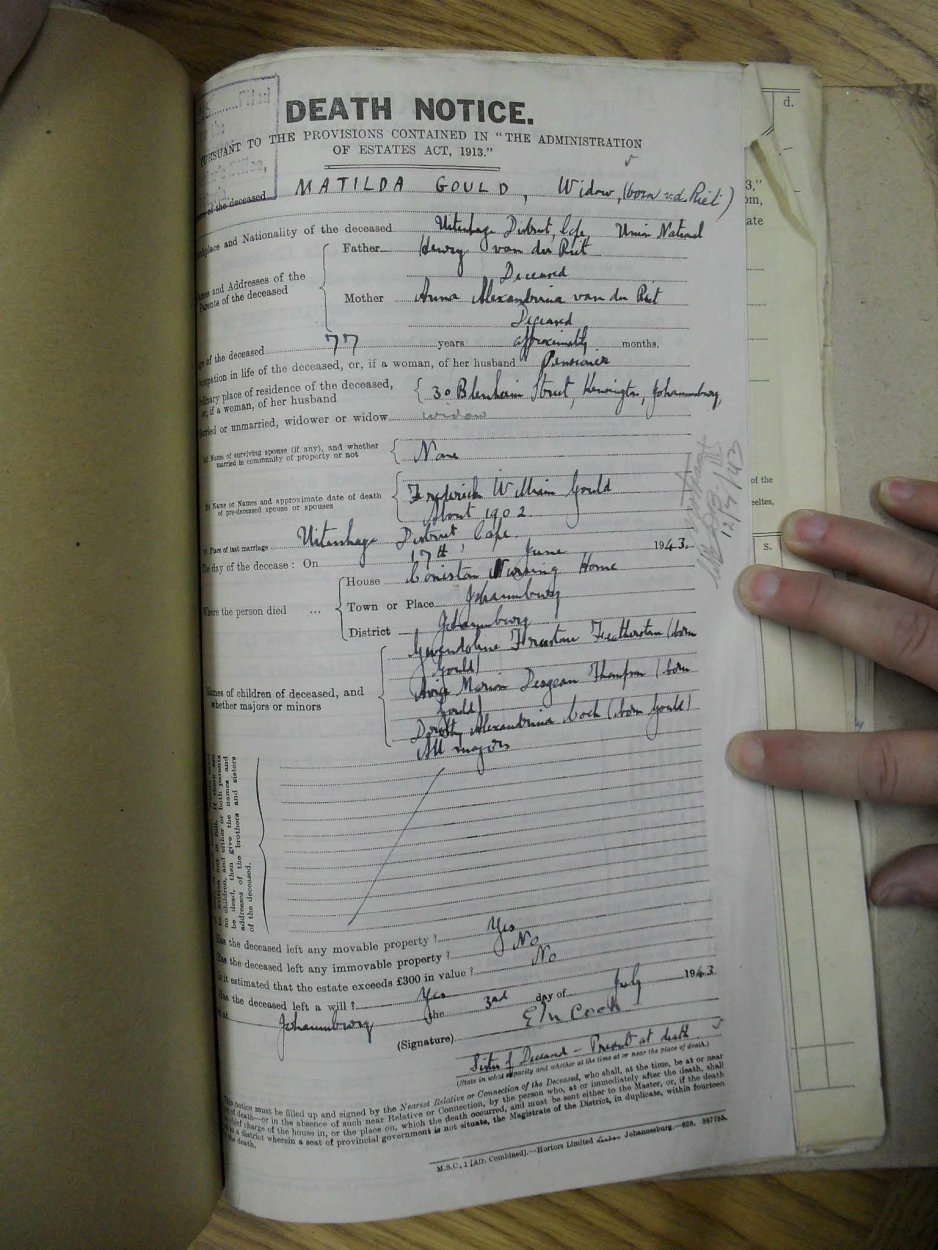 DEATH NOTICE.
PURSUANT TO THE PROVISIONS CONTAINED IN "THE ADMINISTRATION
OF ESTATES ACT, 1913."
of the deceased MATILDA GOULD, Widow, (born v.d. Riet)
place and Nationality of the deceased Uitenhage District, Cape, Union National
Names and Addresses of the Parents of the deceased
Father Henry van der Riet
Deceased
Mother Anna Alexandrina van der Riet
Deceased
of the deceased 77 years approximately months.
Occupation in life of the deceased, or, if a woman, of her husband Pensioner
Ordinary place of residence of the deceased, or, if a woman, of her husband
30 Blenheim Street, Kensington, Johannesburg.
Married or unmarried, widower or widow widow
(a) Name of surviving spouse (if any), and whether married in community of property or not
None
(b) Name or Names and approximate date of death of pre-deceased spouse or spouses
Frederick William Gould
About 1902.
(c) Place of last marriage Uitenhage District, Cape.
The day of the decease: On 17th, June 1943.
Where the person died ...
House Coniston Nursing Home
Town or Place Johannesburg
District Johannesburg
Names of children of deceased, and whether majors or minors
Gwendoline Featherstone (born
Gould)
Marion Thompson (born
Gould)
Dorothy Alexandrina Cock (born Gould)
All majors
no children, and either or both parents
be dead, then give the names and
addresses of the brothers and sisters
of the deceased.
Has the deceased left any movable property? Yes
Has the deceased left any immovable property? No
Is it estimated that the estate exceeds £300 in value? No
Has the deceased left a will? Yes
at Johannesburg the 3rd day of July 1943
(Signature) Cock
Sister of Deceased - Present at death
(State in what capacity and whether at the time at or near the place of death.)
This notice must be filled up and signed by the Nearest Relative or Connection of the Deceased, who shall, at the time, be at or near
of death—or in the absence of such near Relative or Connection, by the person who, at or immediately after the death, shall
chief charge of the house in, or the place on, which the death occurred, and must be sent either to the Master, or, if the death
in a district wherein a seat of provincial government is not situate, the Magistrate of the District, in duplicate, within fourteen
the death.
M.S.C. 1 [Afr. Combined].—Hortors Limited Johannesburg—628. 397755
12/7/43
d.
of the
s.